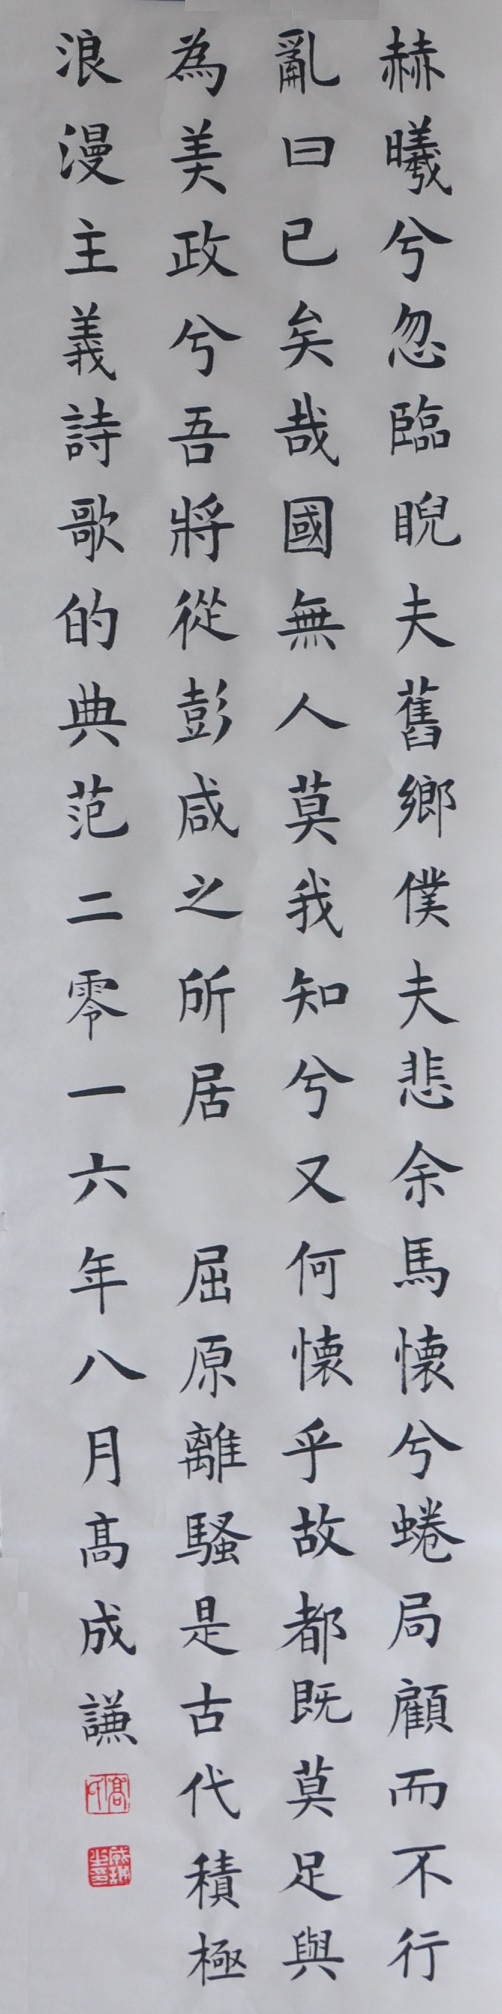 赫曦兮忽臨睨夫舊鄉僕夫悲余馬懷兮蜷局顧而不行
亂曰已矣哉國無人莫我知兮又何懷乎故都既莫足與
為美政兮吾將從彭咸之所居 屈原離騷是古代積極
浪漫主義詩歌的典范二零一六年八月高成謙